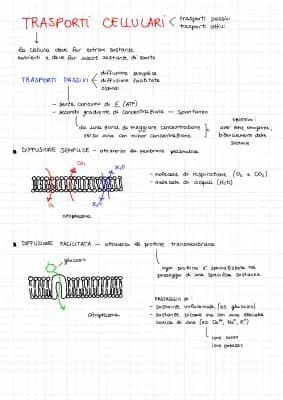 TRASPORTI CELLULARI
trasporti passivi
trasporti attivi
la cellula deve far entrare sostanze
nutrienti e deve far uscire sostanze di scarto
TRASPORTI PASSIVI
diffusione semplice
diffusione facilitata
osmosi
- senza consumo di E (ATP)
- secondo gradiente di concentrazione — spontaneo
da una zona di maggiore concentrazione
verso una con minor concentrazione
obiettivo:
bilanciamento delle
sostanze
DIFFUSIONE SEMPLICE - attraverso la membrana plasmatica
CO₂
H₂O
O₂
H₂O
citoplasma
- molecole di respirazione (O₂ e CO₂)
- molecole di acqua (H₂O)
DIFFUSIONE FACILITATA - attraverso le proteine transmembrana
glucosio
citoplasma
ogni proteina è specializzata nel
passaggio di una specifica sostanza
PASSAGGIO DI:
- sostanze voluminose (es glucosio)
- sostanze piccole ma con una elevata
carica di ioni (es Ca²⁺, Na⁺, K⁺)
ione sodio
ione potassio